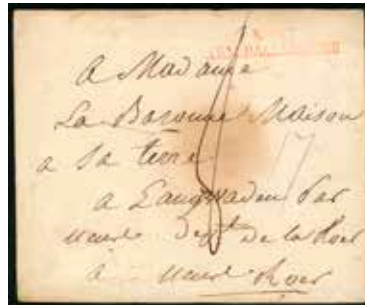 a Madame
La Baronne Maison
a Sa terre
a Langwaden par
Dept de la Roer
a Roer